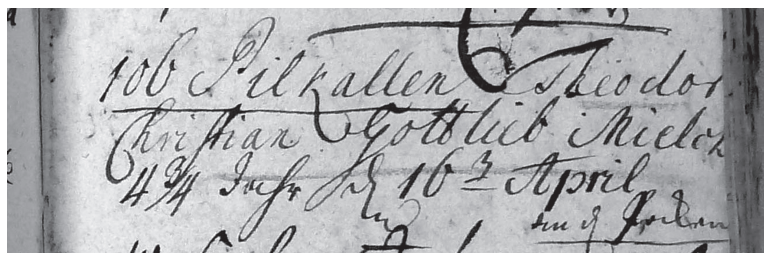 106 Pilkallen Theodor
Christian Gottlieb Mielck
4 3/4 Jahr d 16 3 April
an d Pocken